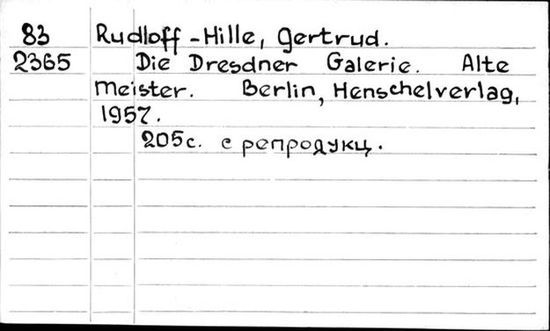 83 Rudloff-Hille, Gertrud.
2365 Die Dresdner Galerie. Alte
Meister. Berlin, Henschelverlag,
1957.
205с. с репродукц.